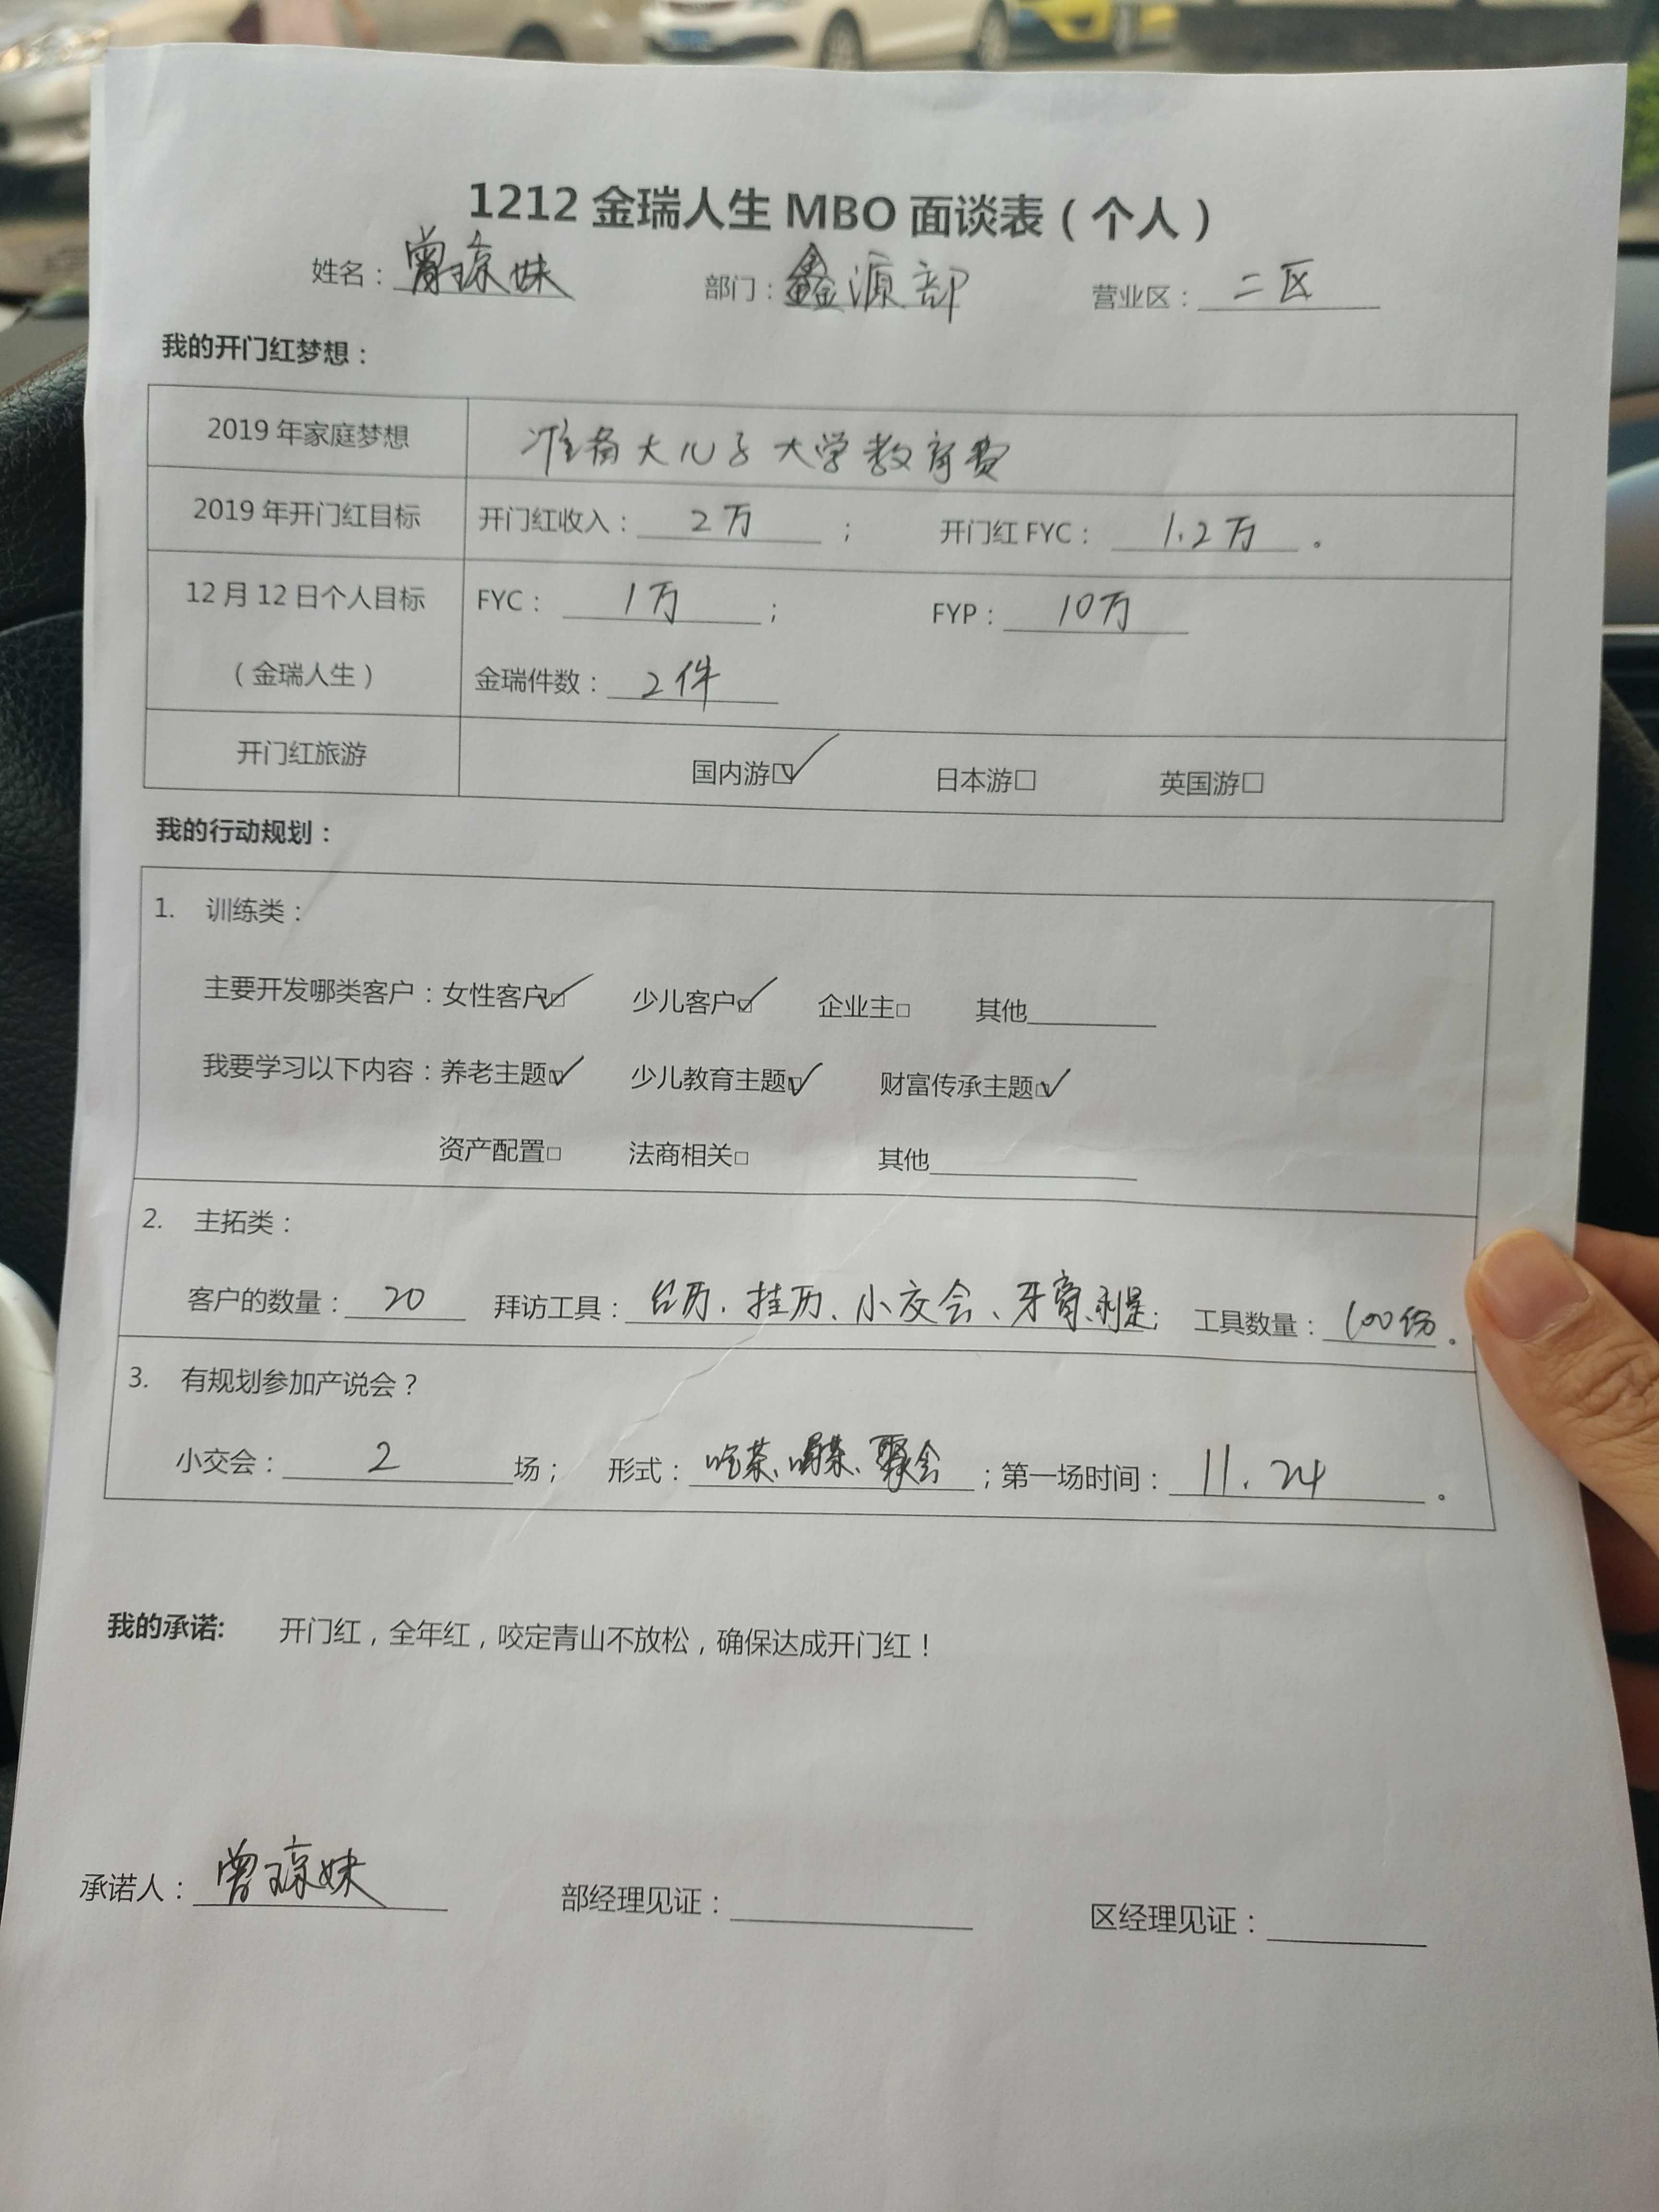 1212 金瑞人生 MBO 面谈表（个人）
姓名：曾琼妹 部门：鑫源部 营业区：二区
我的开门红梦想：
2019 年家庭梦想 准备大儿子大学教育费
2019 年开门红目标 开门红收入：2万； 开门红 FYC：1.2万。
12 月 12 日个人目标 FYC：1万； FYP：10万
（金瑞人生） 金瑞件数：2件
开门红旅游 国内游☑ 日本游□ 英国游□
我的行动规划：
1. 训练类：
主要开发哪类客户：女性客户☑ 少儿客户☑ 企业主□ 其他
我要学习以下内容：养老主题☑ 少儿教育主题☑ 财富传承主题☑
资产配置□ 法商相关□ 其他
2. 主拓类：
客户的数量：20 拜访工具：台历、挂历、小交会、牙膏、利是； 工具数量：100份。
3. 有规划参加产说会？
小交会：2场； 形式：吃茶、喝茶、聚会；第一场时间：11.24。
我的承诺: 开门红，全年红，咬定青山不放松，确保达成开门红！
承诺人：曾琼妹 部经理见证： 区经理见证：